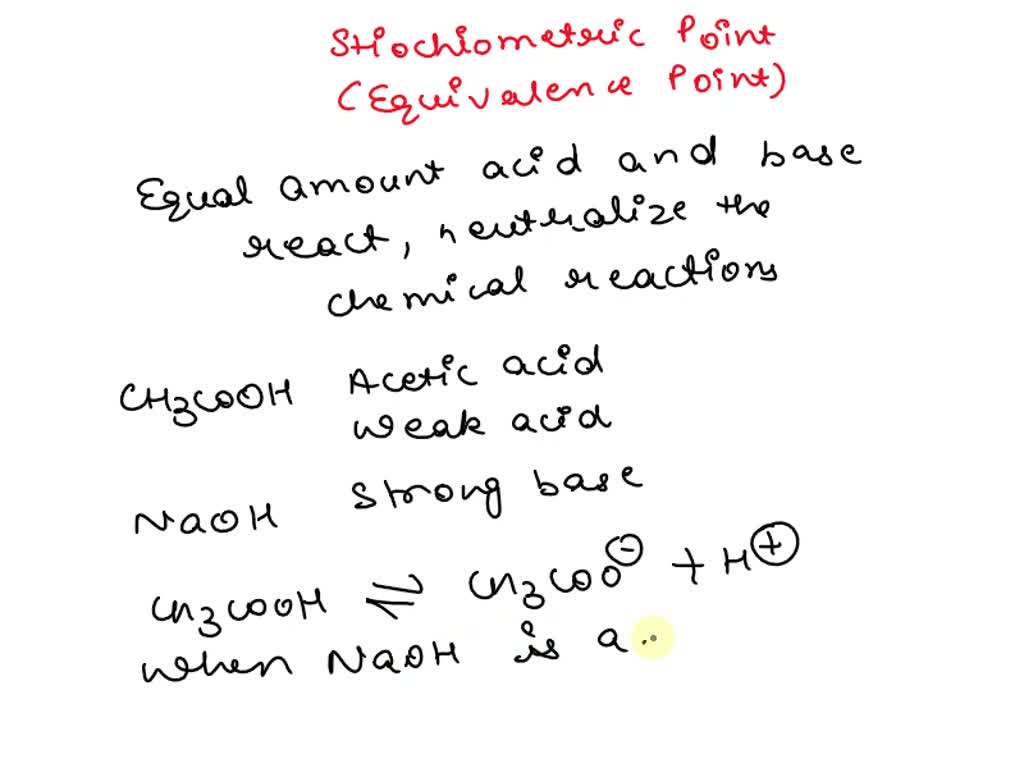 Stiochiometric Point
(Equivalence Point)
Equal amount acid and base
react, neutralize the
chemical reactions
CH3COOH Acetic acid
weak acid
NaOH Strong base
CH3COOH ⇌ CH3COO⊖ + H⊕
when NaOH is a